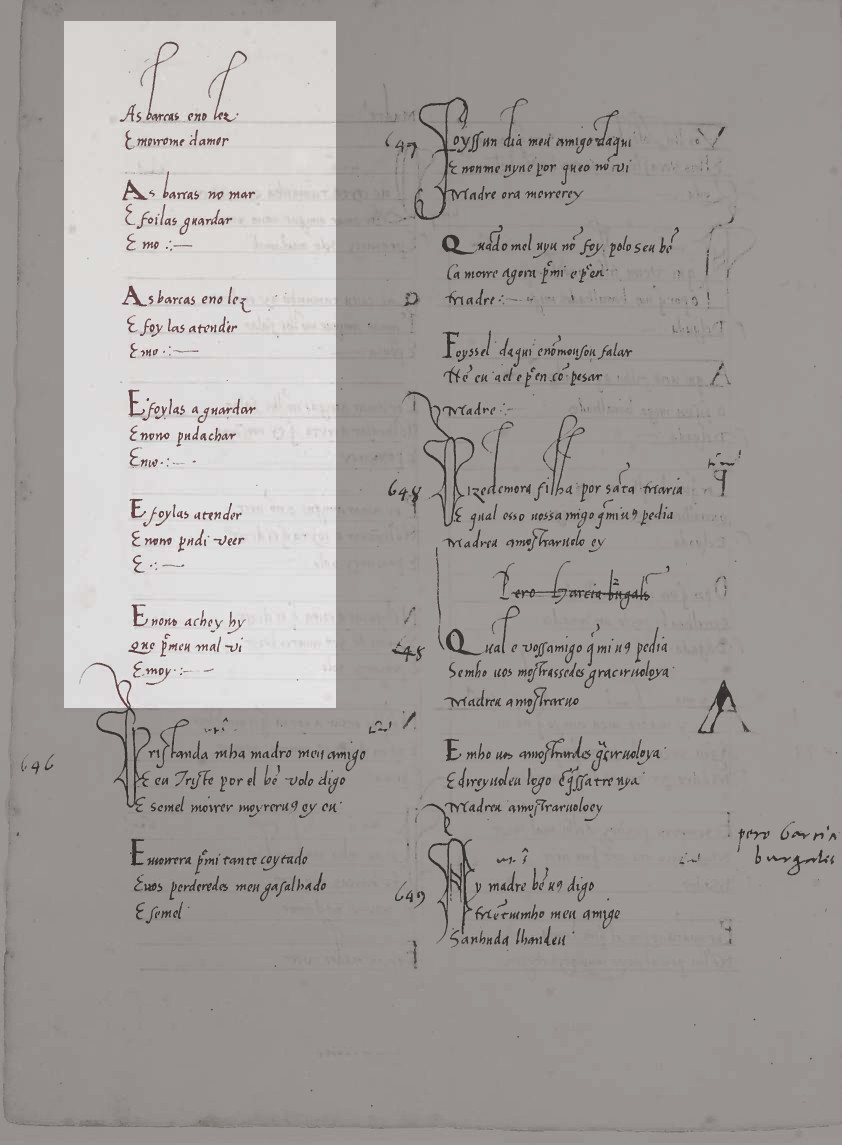 As barcas eno lez
E moirome damor
As barcas no mar
E foilas guardar
E mo
As barcas eno lez
E foy las atender
E mo
E foylas aguardar
E nono pudachar
E mo
E foylas atender
E nono pudi veer
E
E nono achey hy
Que pʳmeu mal vi
E moy
646
Tristanda mha madro meu amigo
E eu Triste por el bē volo digo
E semel moirer moyrerus ey eu
E morrera pʳmi tante coytado
E uos perderedes meu gasalhado
E semel
647
Foyssun dia meu amigo daqui
E nonme uyue por queo nō vi
Madre ora morrerey
Quādo mel uyu nō foy polo seu bē
Ca morre agora pʳmi e pʳen
Madre
Foyssel daqui enōmousou falar
Nē eu ael e pʳen cō pesar
Madre
648
Dizedemora filha por sāta Maria
E qual esso uossamigo q̄mius pedia
Madreu amostraruolo ey
Pero Garcia bu͛gales
648
Qual e vossamigo q̄mi us pedia
Semho uos mostrassedes graciruoloya
Madreu amostraruo
E mho uos amostrardes gʳciruoloya
E direyuoleu logo
Madreu amostraruoloey
A
pero Garcia
burgales
649
Ay madre bē us digo
Mētiumho meu amigo
Sanhuda lhandeu